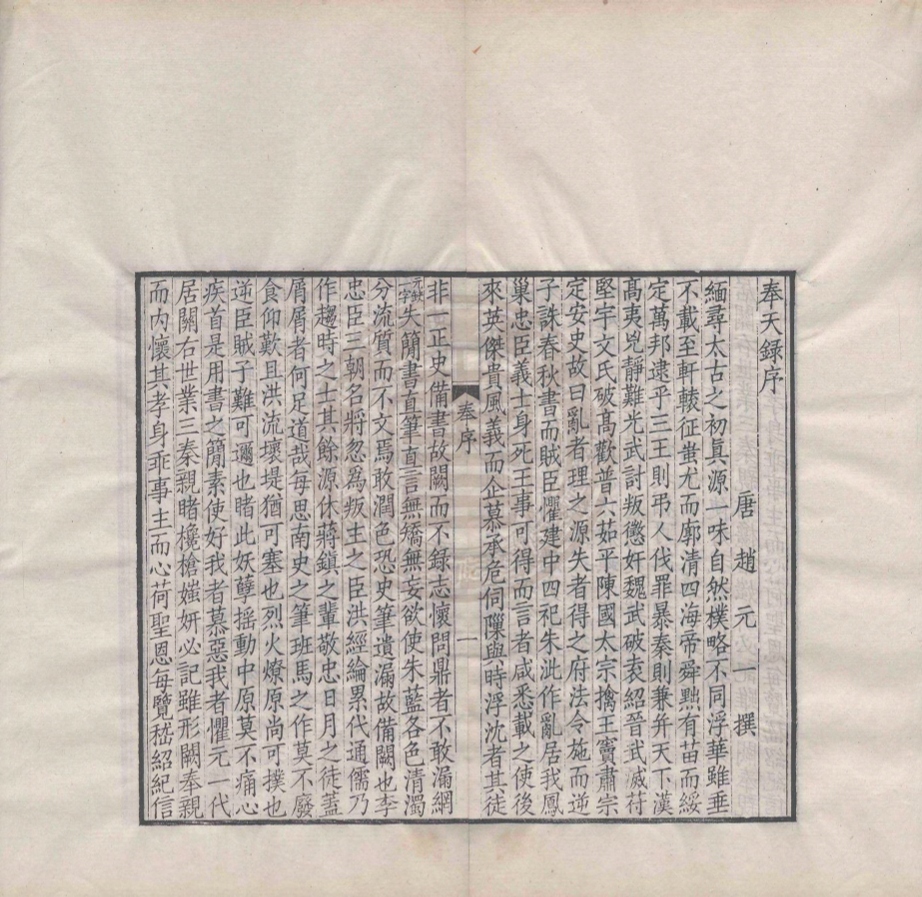 奉天録序
唐趙元一撰
緬尋太古之初真源一味自然樸略不同浮華雖垂
不載至軒轅征蚩尤而廓清四海帝舜黜有苗而綏
定萬邦逮乎三王則弔人伐罪暴秦則兼并天下漢
髙夷兇靜難光武討叛懲奸魏武破袁紹晉武滅苻
堅宇文氏破髙歡普六茹平陳國太宗擒王竇肅宗
定安史故曰亂者理之源失者得之府法令施而逆
子誅春秋書而賊臣懼建中四祀朱泚作亂居我鳳
巢忠臣義士身死王事可得而言者咸悉載之使後
來英傑貴風義而企慕承危伺隟與時浮沈者其徒
奉序
一
非一正史備書故闕而不録志懷問鼎者不敢漏網
元缺一字失簡書直筆直言無矯無妄欲使朱藍各色清濁
分流質而不文焉敢潤色恐史筆遺漏故備闕也李
忠臣三朝名將忽爲叛主之臣洪經綸累代通儒乃
作趨時之士其餘源休蔣鎮之輩敬忠日月之徒葢
屑屑者何足道哉每思南史之筆班馬之作莫不廢
食仰歎且洪流壞堤猶可塞也烈火燎原尚可撲也
逆臣賊子難可邇也睹此妖孽揺動中原莫不痛心
疾首是用書之簡素使好我者慕惡我者懼元一代
居關右世業三秦親睹欃槍媸妍必記雖形闕奉親
而内懷其孝身乖事主而心荷聖恩每覽嵇紹紀信